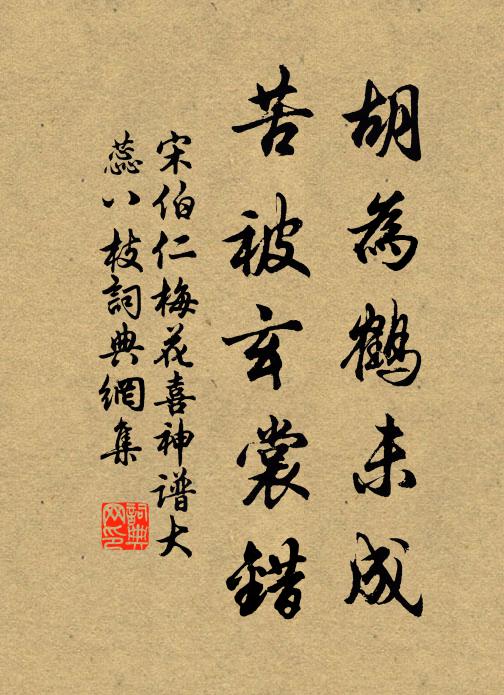 胡為鶴未成
苦被玄裳錯
宋伯仁梅花喜神谱大
蕊八枝詞典網集
詞典
网印